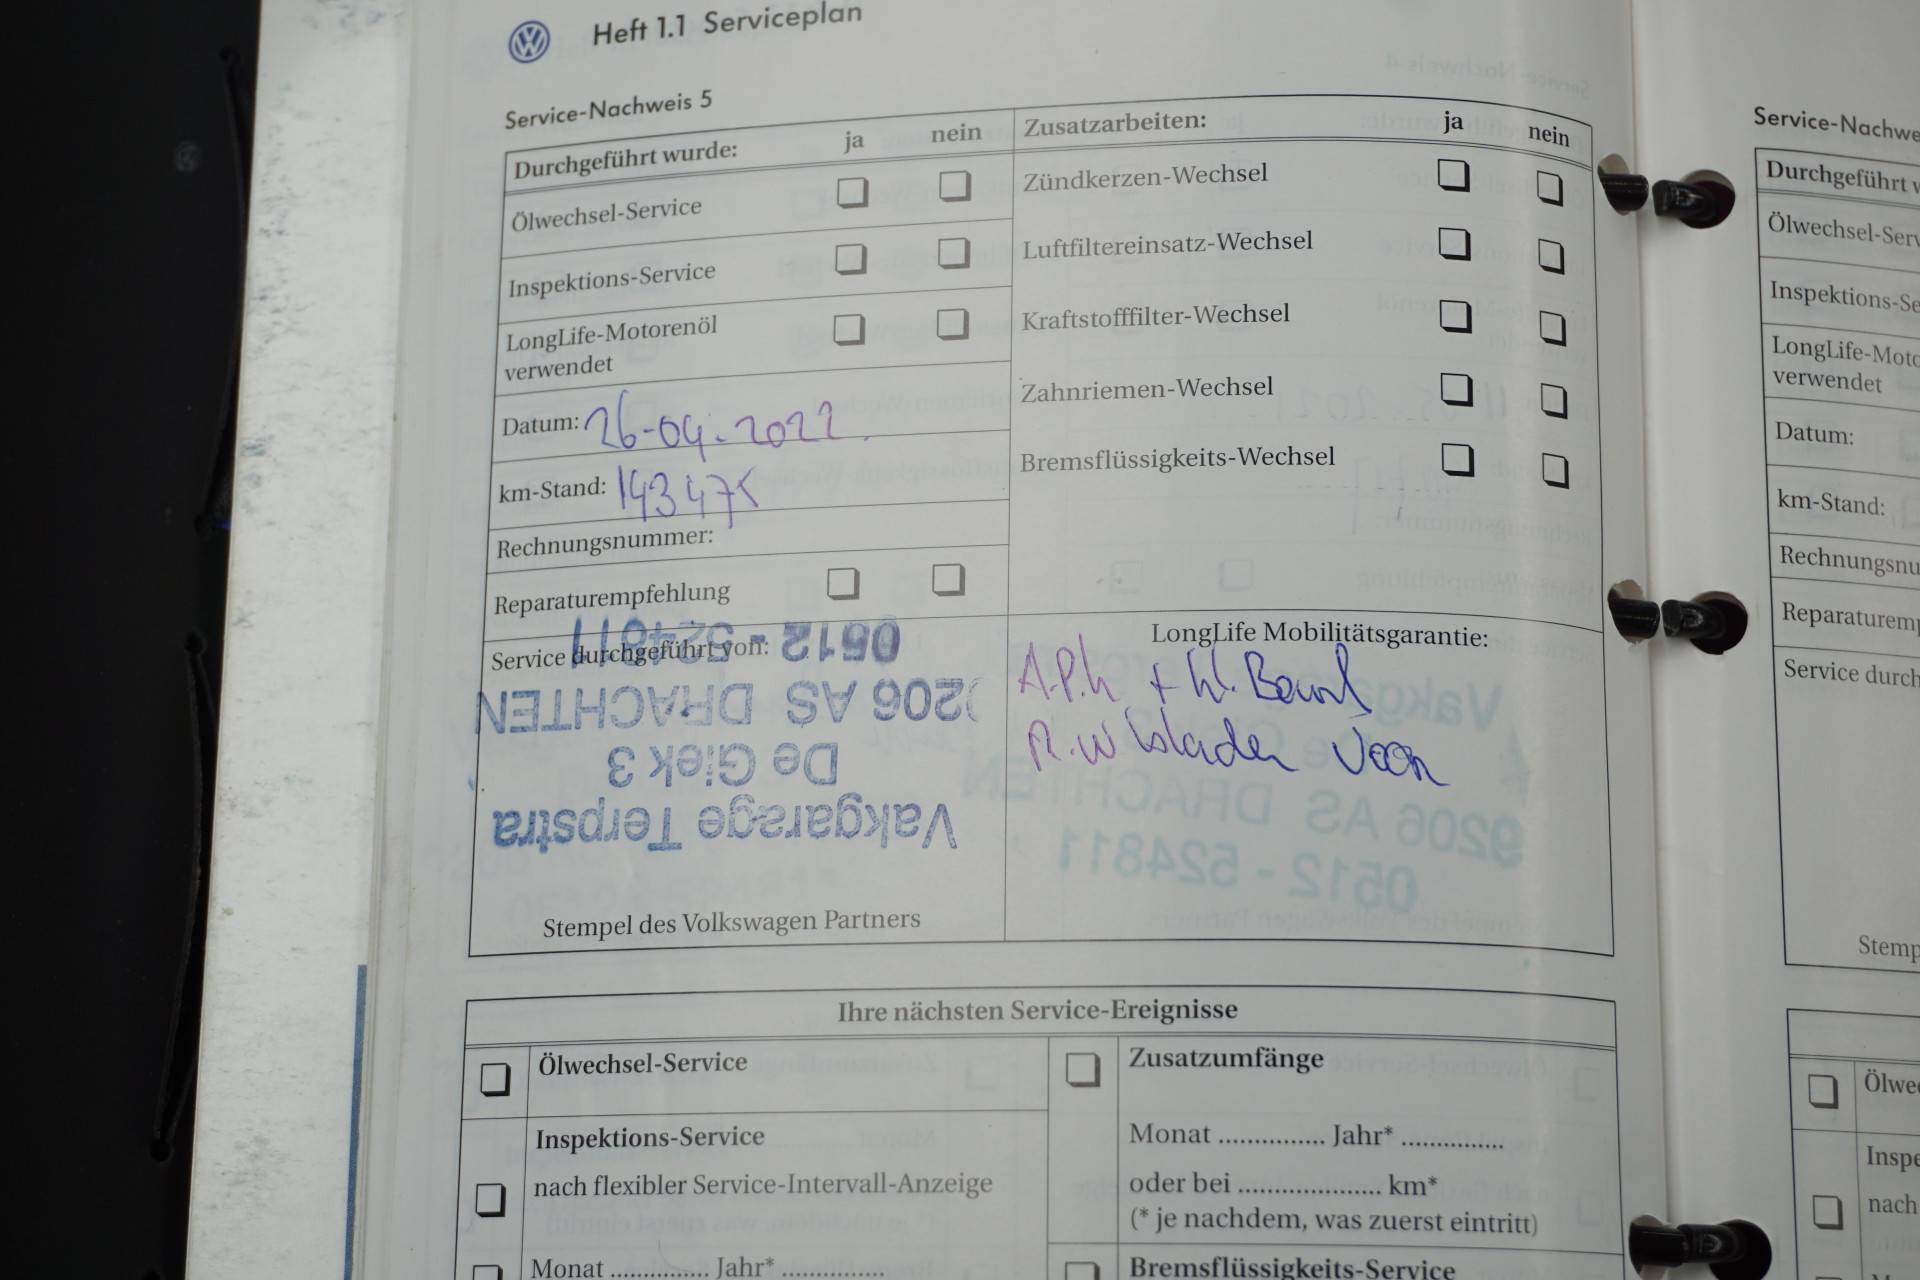 Heft 1.1 Serviceplan
Service-Nachweis 5
Durchgeführt wurde: ja nein
Ölwechsel-Service
Inspektions-Service
LongLife-Motorenöl
verwendet
Datum: 26-04-2022
km-Stand:
Rechnungsnummer:
Reparaturempfehlung
Service durchgeführt von:
Vakgarage Terpstra
De Giek 3
9206 AS DRACHTEN
0512 - 524811
Stempel des Volkswagen Partners
Zusatzarbeiten: ja nein
Zündkerzen-Wechsel
Luftfiltereinsatz-Wechsel
Kraftstofffilter-Wechsel
Zahnriemen-Wechsel
Bremsflüssigkeits-Wechsel
LongLife Mobilitätsgarantie:
A.P.K +
Voor
Ihre nächsten Service-Ereignisse
Ölwechsel-Service
Inspektions-Service
nach flexibler Service-Intervall-Anzeige
Monat ............... Jahr* ...............
Zusatzumfänge
Monat ............... Jahr* ...............
oder bei .................... km*
(* je nachdem, was zuerst eintritt)
Bremsflüssigkeits-Service
Service-Nachwe
Durchgeführt w
Ölwechsel-Serv
Inspektions-Se
LongLife-Moto
verwendet
Datum:
km-Stand:
Rechnungsnu
Reparaturemp
Service durch
Stemp
Ölwe
Inspe
nach